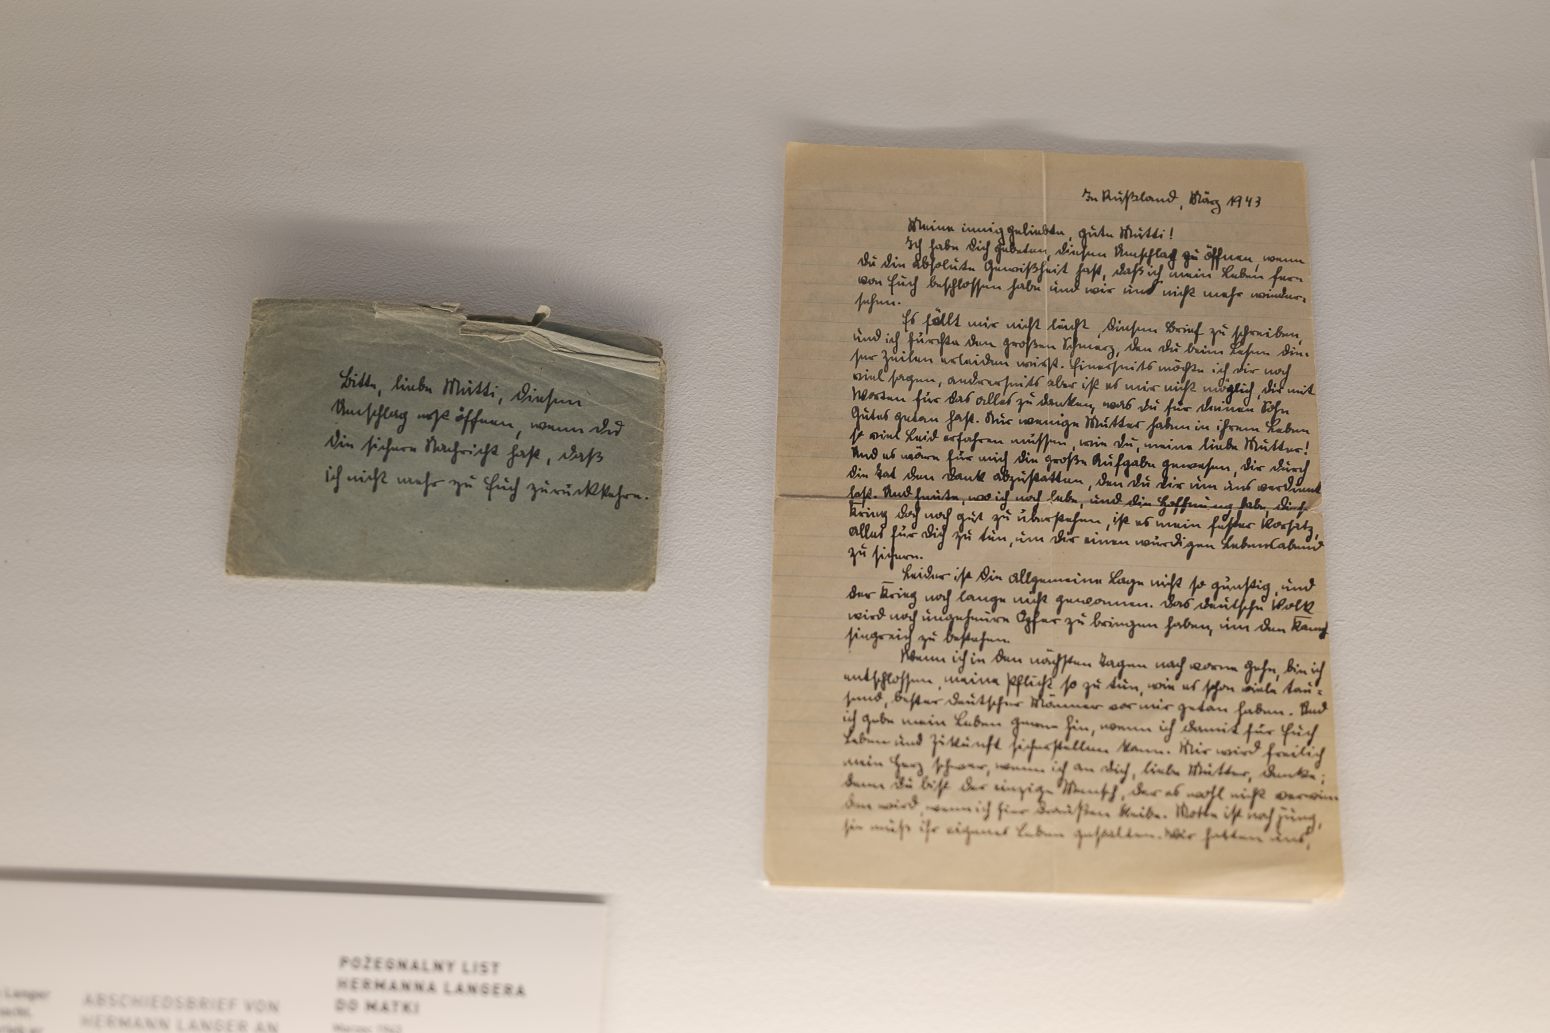 Bitte, liebe Mutti, diesen
Umschlag erst öffnen, wenn Du
die sichere Nachricht hast, daß
ich nicht mehr zu Euch zurückkehre.
In Rußland, März 1943
Meine innig geliebte, gute Mutti!
Ich habe Dich gebeten, diesen Umschlag zu öffnen, wenn
Du die absolute Gewißheit hast, daß ich mein Leben fern
von Euch beschlossen habe und wir uns nicht mehr wieder-
sehen.
Es fällt mir nicht leicht, diesen Brief zu schreiben,
und ich fürchte den großen Schmerz, den Du beim Lesen die-
ser Zeilen erleiden wirst. Einerseits möchte ich Dir noch
viel sagen, andrerseits aber ist es mir nicht möglich, dir mit
Worten für das alles zu danken, was Du für deinen Sohn
Gutes getan hast. Nur wenige Mütter haben in ihrem Leben
so viel Leid erfahren müssen, wie Du, meine liebe Mutter!
Und es wäre für mich die große Aufgabe gewesen, dir durch
die Tat den Dank abzustatten, den Du dir um uns verdient
hast. Und heute, wo ich noch lebe, und die Hoffnung habe, diesen
Krieg doch noch gut zu überstehen, ist es mein fester Vorsatz,
alles für Dich zu tun, um Dir einen würdigen Lebensabend
zu sichern.
Leider ist die allgemeine Lage nicht so günstig, und
der Krieg noch lange nicht gewonnen. Das deutsche Volk
wird noch ungeheure Opfer zu bringen haben, um den Kampf
siegreich zu bestehen.
Wenn ich in den nächsten Tagen nach vorne gehe, bin ich
entschlossen, meine Pflicht so zu tun, wie es schon viele tau-
send, bester deutscher Männer vor mir getan haben. Und
ich gebe mein Leben gerne hin, wenn ich damit für Euch
Leben und Zukunft sicherstellen kann. Mir wird freilich
mein Herz schwer, wenn ich an Dich, liebe Mutter, denke;
denn Du bist der einzige Mensch, der es wohl nicht verwin-
den wird, wenn ich hier draußen bleibe. Motte ist noch jung,
sie muß ihr eigenes Leben gestalten. Wir hatten uns,
Langer
ABSCHIEDSBRIEF VON
HERMANN LANGER AN
POŻEGNALNY LIST
HERMANNA LANGERA
DO MATKI